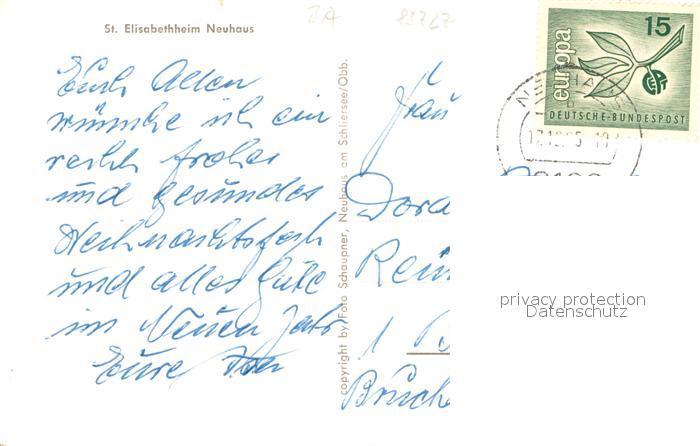 St. Elisabethheim Neuhaus
Euch Allen
wünsche ich ein
recht frohes
und gesundes
Weihnachtsfest
und alles Gute
im Neuen Jahr
Eure
copyright by Foto Schaupner, Neuhaus am Schliersee/Obb.
Frau
Dora
1
europa
15
DEUTSCHE·BUNDESPOST
privacy protection
Datenschutz